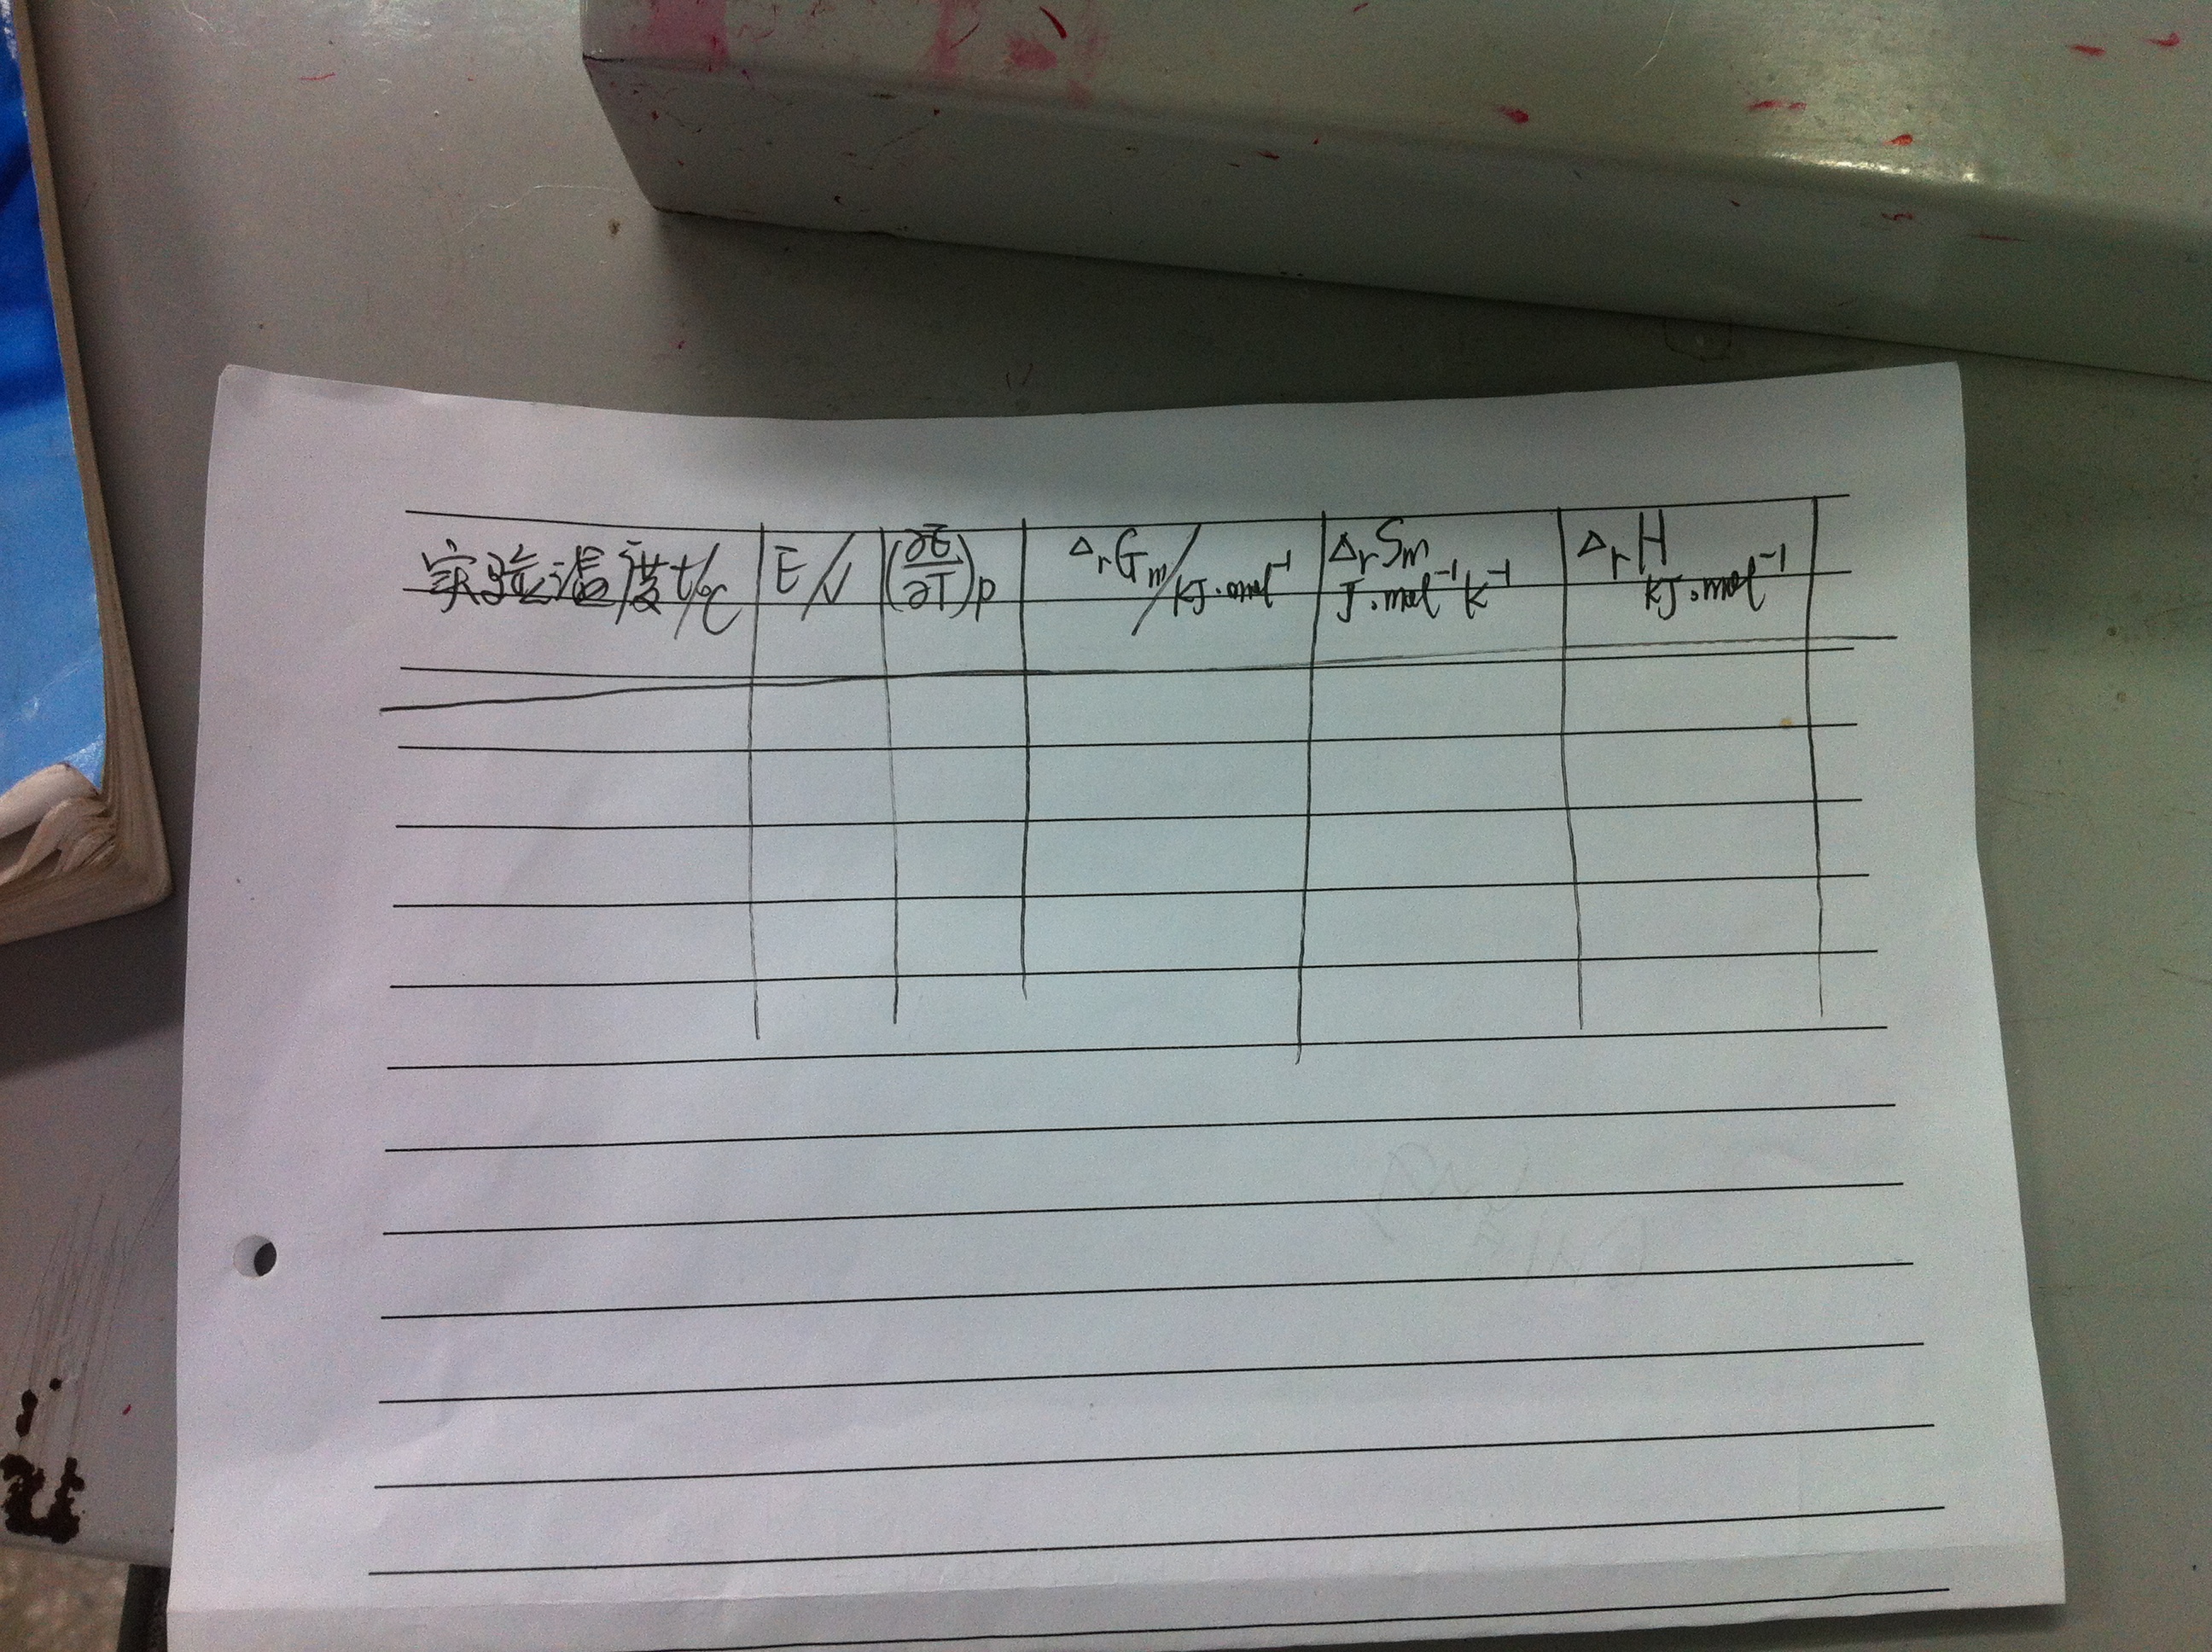 实验温度t/°C E/V (∂E/∂T)p ΔrGm/kJ·mol⁻¹ ΔrSm J·mol⁻¹K⁻¹ ΔrH kJ·mol⁻¹